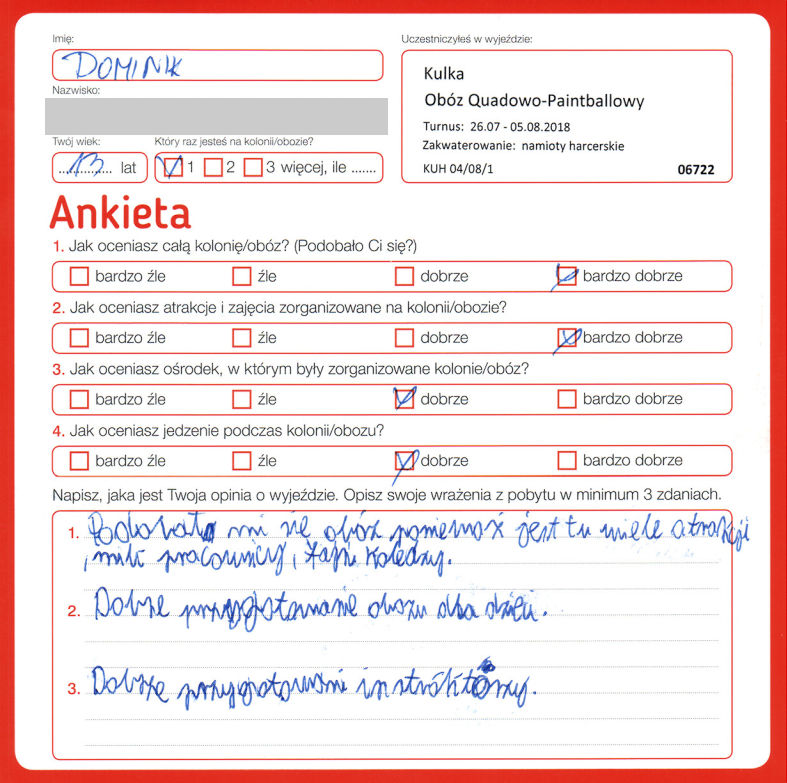 Imię:
DOMINIK
Nazwisko:
Twój wiek:
13 lat
Który raz jesteś na kolonii/obozie?
1 2 3 więcej, ile .......
Uczestniczyłeś w wyjeździe:
Kulka
Obóz Quadowo-Paintballowy
Turnus: 26.07 - 05.08.2018
Zakwaterowanie: namioty harcerskie
KUH 04/08/1 06722
Ankieta
1. Jak oceniasz całą kolonię/obóz? (Podobało Ci się?)
bardzo źle źle dobrze bardzo dobrze
2. Jak oceniasz atrakcje i zajęcia zorganizowane na kolonii/obozie?
bardzo źle źle dobrze bardzo dobrze
3. Jak oceniasz ośrodek, w którym były zorganizowane kolonie/obóz?
bardzo źle źle dobrze bardzo dobrze
4. Jak oceniasz jedzenie podczas kolonii/obozu?
bardzo źle źle dobrze bardzo dobrze
Napisz, jaka jest Twoja opinia o wyjeździe. Opisz swoje wrażenia z pobytu w minimum 3 zdaniach.
1. Podobał mi się obóz poniewoż jest tu wiele atrakcji
, mili pracownicy, fajni koledzy.
2. Dobrze przygotowanie obozu dla dzieci.
3. Dobrze przygotowani instróktorzy.